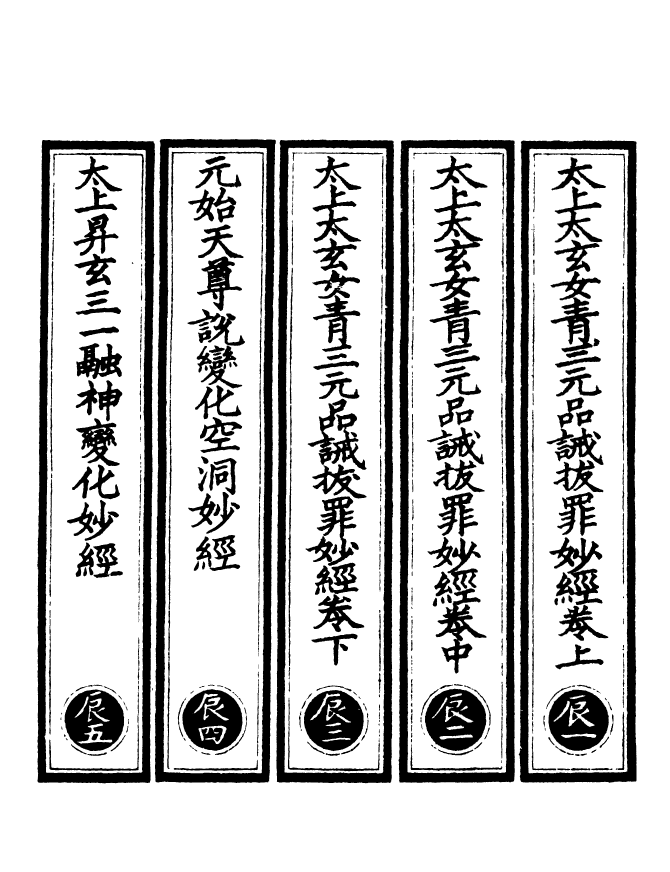 太上太玄女青三元品誡拔罪妙經卷上
辰一
太上太玄女青三元品誡拔罪妙經卷中
辰二
太上太玄女青三元品誡拔罪妙經卷下
辰三
元始天尊說變化空洞妙經
辰四
太上昇玄三一融神變化妙經
辰五